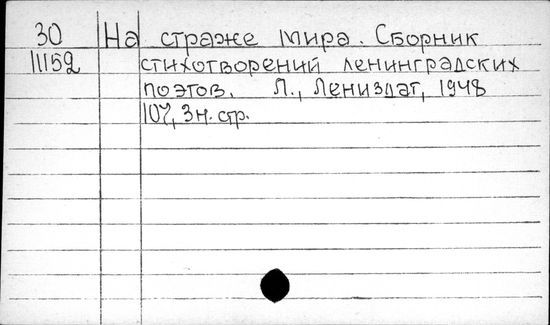 30 На страже мира. Сборник
11152 стихотворений ленинградских
поэтов. Л., Лениздат, 1948
107, 3 н. стр.